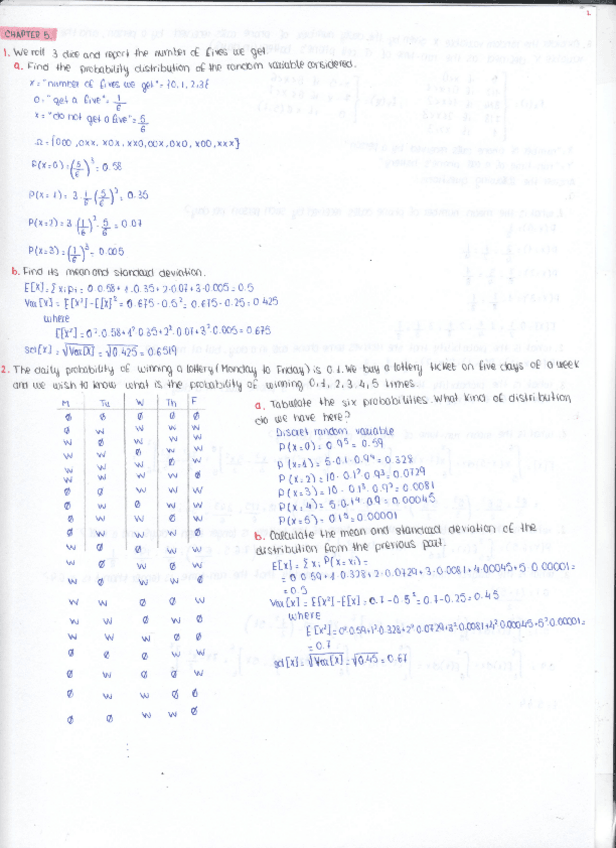 CHAPTER 5.
1. We roll 3 dice and report the number of fives we get.
a. Find the probability distribution of the random variable considered.
x = "number of fives we get" = {0,1,2,3}
0: "get a five" = 1/6
x = "do not get a five" = 5/6
Ω = {000, 0xx, x0x, xx0, 00x, 0x0, x00, xxx}
P(x=0) = (5/6)³ = 0.58
P(x=1) = 3 · 1/6 · (5/6)² = 0.35
P(x=2) = 3 · (1/6)² · 5/6 = 0.07
P(x=3) = (1/6)³ = 0.005
b. Find its mean and standard deviation.
E[x] = Σ xi pi = 0·0.58 + 1·0.35 + 2·0.07 + 3·0.005 = 0.5
Var[x] = E[x²] - E[x]² = 0.675 - 0.5² = 0.675 - 0.25 = 0.425
where
E[x²] = 0²·0.58 + 1²·0.35 + 2²·0.07 + 3²·0.005 = 0.675
sd[x] = √Var[x] = √0.425 = 0.6519
2. The daily probability of winning a lottery (Monday to Friday) is 0.1. We buy a lottery ticket on five days of a week
and we wish to know what is the probability of winning 0,1,2,3,4,5 times.
M Tu W Th F
a. Tabulate the six probabilities. What kind of distribution
do we have here?
Discret random variable
P(x=0) = 0.9⁵ = 0.59
P(x=1) = 5·0.1·0.9⁴ = 0.328
P(x=2) = 10·0.1²·0.9³ = 0.0729
P(x=3) = 10·0.1³·0.9² = 0.0081
P(x=4) = 5·0.1⁴·0.9 = 0.00045
P(x=5) = 0.1⁵ = 0.00001
b. Calculate the mean and standard deviation of the
distribution from the previous part.
E[x] = Σ xi P(x=xi) =
= 0·0.59 + 1·0.328 + 2·0.0729 + 3·0.0081 + 4·0.00045 + 5·0.00001 =
= 0.5
Var[x] = E[x²] - E[x] = 0.7 - 0.5² = 0.7 - 0.25 = 0.45
where
E[x²] = 0²·0.59 + 1²·0.328 + 2²·0.0729 + 3²·0.0081 + 4²·0.00045 + 5²·0.00001 =
= 0.7
sd[x] = √Var[x] = √0.45 = 0.67